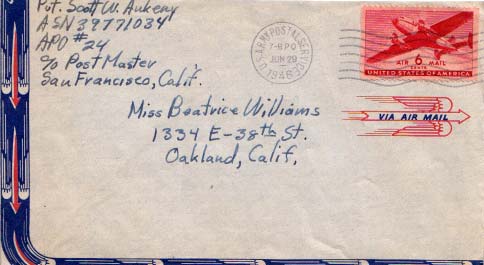 Pvt. Scott W. Ankeny
ASN 39771034
APO #24
c/o Post Master
San Francisco, Calif.
U.S. ARMY POSTAL SERVICE
JUN 29
1946
AIR 6 MAIL
CENTS
UNITED STATES OF AMERICA
VIA AIR MAIL
Miss Beatrice Williams
1334 E-38th St.
Oakland, Calif.